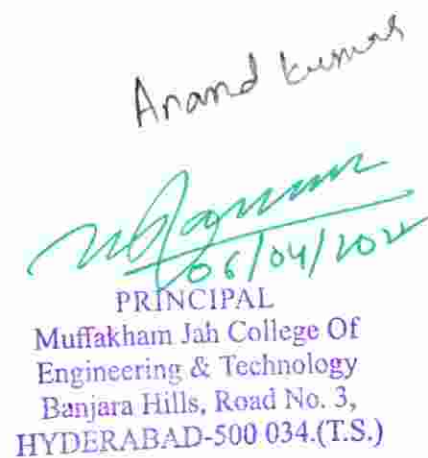 Anand kumar
06/04/2022
PRINCIPAL
Muffakham Jah College Of
Engineering & Technology
Banjara Hills, Road No. 3,
HYDERABAD-500 034.(T.S.)